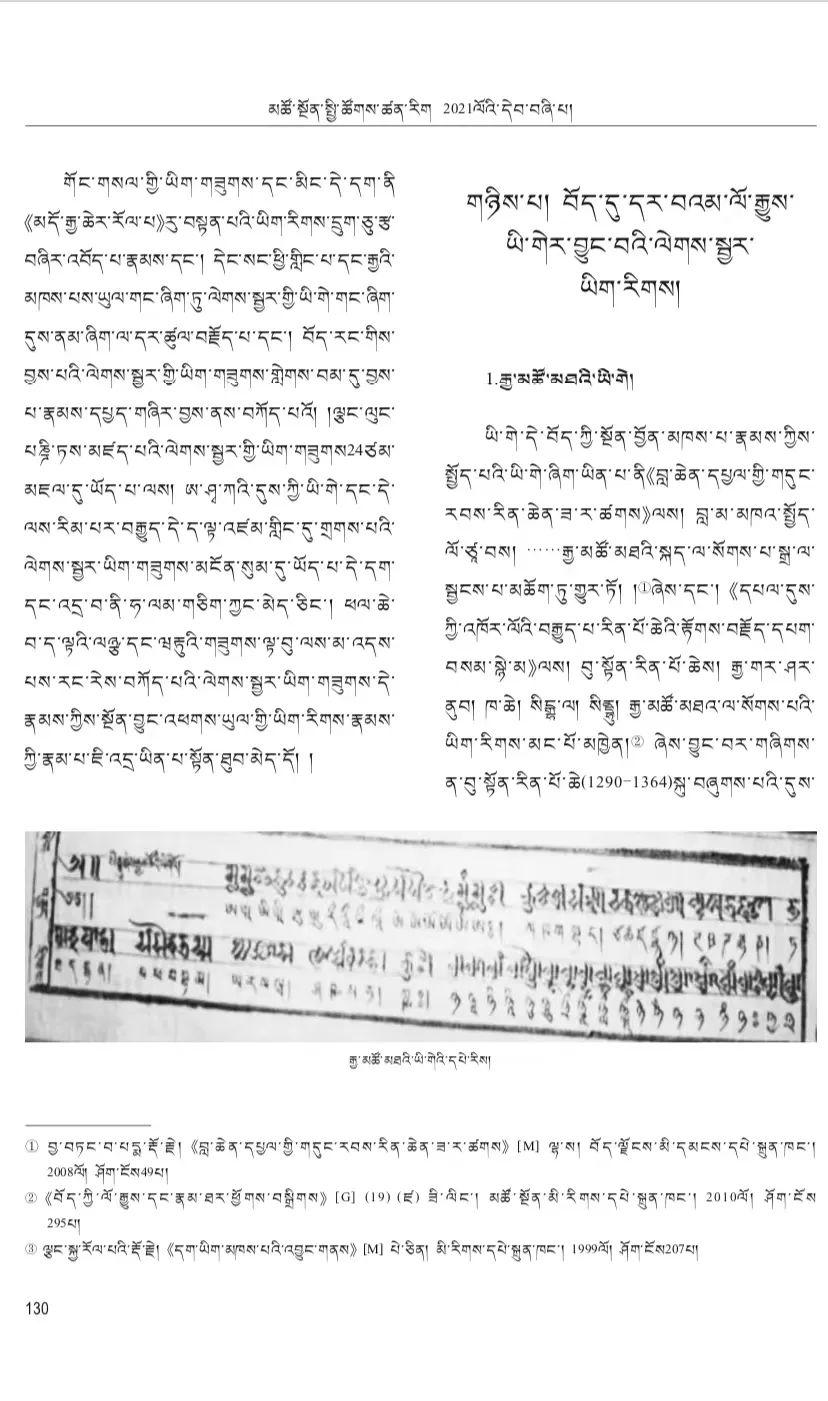 མཚོ་སྔོན་སྤྱི་ཚོགས་ཚན་རིག 2021ལོའི་དེབ་བཞི་པ།
གོང་གསལ་གྱི་ཡིག་གཟུགས་དང་མིང་དེ་དག་ནི
《མདོ་རྒྱ་ཆེར་རོལ་པ》རུ་བསྟན་པའི་ཡིག་རིགས་དྲུག་ཅུ་རྩ་
བཞིར་འབོད་པ་རྣམས་དང་། དེང་སང་ཕྱི་གླིང་པ་དང་རྒྱའི་
མཁས་པས་ཡུལ་གང་ཞིག་ཏུ་ལེགས་སྦྱར་གྱི་ཡི་གེ་གང་ཞིག་
དུས་ནམ་ཞིག་ལ་དར་ཚུལ་བརྗོད་པ་དང་། བོད་རང་གིས་
བྱས་པའི་ལེགས་སྦྱར་གྱི་ཡིག་གཟུགས་གླེགས་བམ་དུ་བྱས་
པ་རྣམས་དཔྱད་གཞིར་བྱས་ནས་བཀོད་པའོ། །ལྕང་ལུང་
པཎྜི་ཏས་མཛད་པའི་ལེགས་སྦྱར་གྱི་ཡིག་གཟུགས24ཙམ་
མཇལ་དུ་ཡོད་པ་ལས། ཨ་ཤྭ་ཀའི་དུས་ཀྱི་ཡི་གེ་དང་དེ་
ལས་རིམ་པར་བརྒྱུད་དེ་ད་ལྟ་འཛམ་གླིང་དུ་གྲགས་པའི་
ལེགས་སྦྱར་ཡིག་གཟུགས་མངོན་སུམ་དུ་ཡོད་པ་དེ་དག་
དང་འདྲ་བ་ནི་ཧ་ལམ་གཅིག་ཀྱང་མེད་ཅིང་། ཕལ་ཆེ་
བ་ད་ལྟའི་ལཉྩ་དང་ཝརྟུའི་གཟུགས་ལྟ་བུ་ལས་མ་འདས་
པས་རང་རེས་བཀོད་པའི་ལེགས་སྦྱར་ཡིག་གཟུགས་དེ་
རྣམས་ཀྱིས་སྔོན་བྱུང་འཕགས་ཡུལ་གྱི་ཡིག་རིགས་རྣམས་
ཀྱི་རྣམ་པ་ཇི་འདྲ་ཡིན་པ་སྟོན་ཐུབ་མེད་དོ། །
གཉིས་པ། བོད་དུ་དར་བའམ་ལོ་རྒྱུས་
ཡི་གེར་བྱུང་བའི་ལེགས་སྦྱར་
ཡིག་རིགས།
1.རྒྱ་མཚོ་མཐའི་ཡི་གེ།
ཡི་གེ་དེ་བོད་ཀྱི་སྔོན་བྱོན་མཁས་པ་རྣམས་ཀྱིས་
སྤྱོད་པའི་ཡི་གེ་ཞིག་ཡིན་པ་ནི《བླ་ཆེན་དཔྱལ་གྱི་གདུང་
རབས་རིན་ཆེན་ཟ་ར་ཚགས》ལས། བླ་མ་མཁའ་སྤྱོད་
ལོ་ཙཱ་བས། ……རྒྱ་མཚོ་མཐའི་སྐད་ལ་སོགས་པ་སྒྲ་ལ་
སྦྱངས་པ་མཆོག་ཏུ་གྱུར་ཏོ། །①ཞེས་དང་། 《དཔལ་དུས་
ཀྱི་འཁོར་ལོའི་བརྒྱུད་པ་རིན་པོ་ཆེའི་རྟོགས་བརྗོད་དཔག་
བསམ་སྙེ་མ》ལས། བུ་སྟོན་རིན་པོ་ཆེས། རྒྱ་གར་ཤར་
ནུབ། ཁ་ཆེ། སིངྒ་ལ། སིནྡྷུ། རྒྱ་མཚོ་མཐའ་ལ་སོགས་པའི་
ཡིག་རིགས་མང་པོ་མཁྱེན།② ཞེས་བྱུང་བར་གཞིགས་
ན་བུ་སྟོན་རིན་པོ་ཆེ(1290-1364)སྐུ་བཞུགས་པའི་དུས་
རྒྱ་མཚོ་མཐའི་ཡི་གེའི་དཔེ་རིས།
① བྱ་བཏང་བ་པདྨ་རྡོ་རྗེ། 《བླ་ཆེན་དཔྱལ་གྱི་གདུང་རབས་རིན་ཆེན་ཟ་ར་ཚགས》 [M] ལྷ་ས། བོད་ལྗོངས་མི་དམངས་དཔེ་སྐྲུན་ཁང་།
2008ལོ། ཤོག་ངོས49པ།
② 《བོད་ཀྱི་ལོ་རྒྱུས་དང་རྣམ་ཐར་ཕྱོགས་བསྒྲིགས》 [G] (19) (ཛ) ཟི་ལིང་། མཚོ་སྔོན་མི་རིགས་དཔེ་སྐྲུན་ཁང་། 2010ལོ། ཤོག་ངོས
295པ།
③ ལྕང་སྐྱ་རོལ་པའི་རྡོ་རྗེ། 《དག་ཡིག་མཁས་པའི་འབྱུང་གནས》 [M] པེ་ཅིན། མི་རིགས་དཔེ་སྐྲུན་ཁང་། 1999ལོ། ཤོག་ངོས207པ།
130